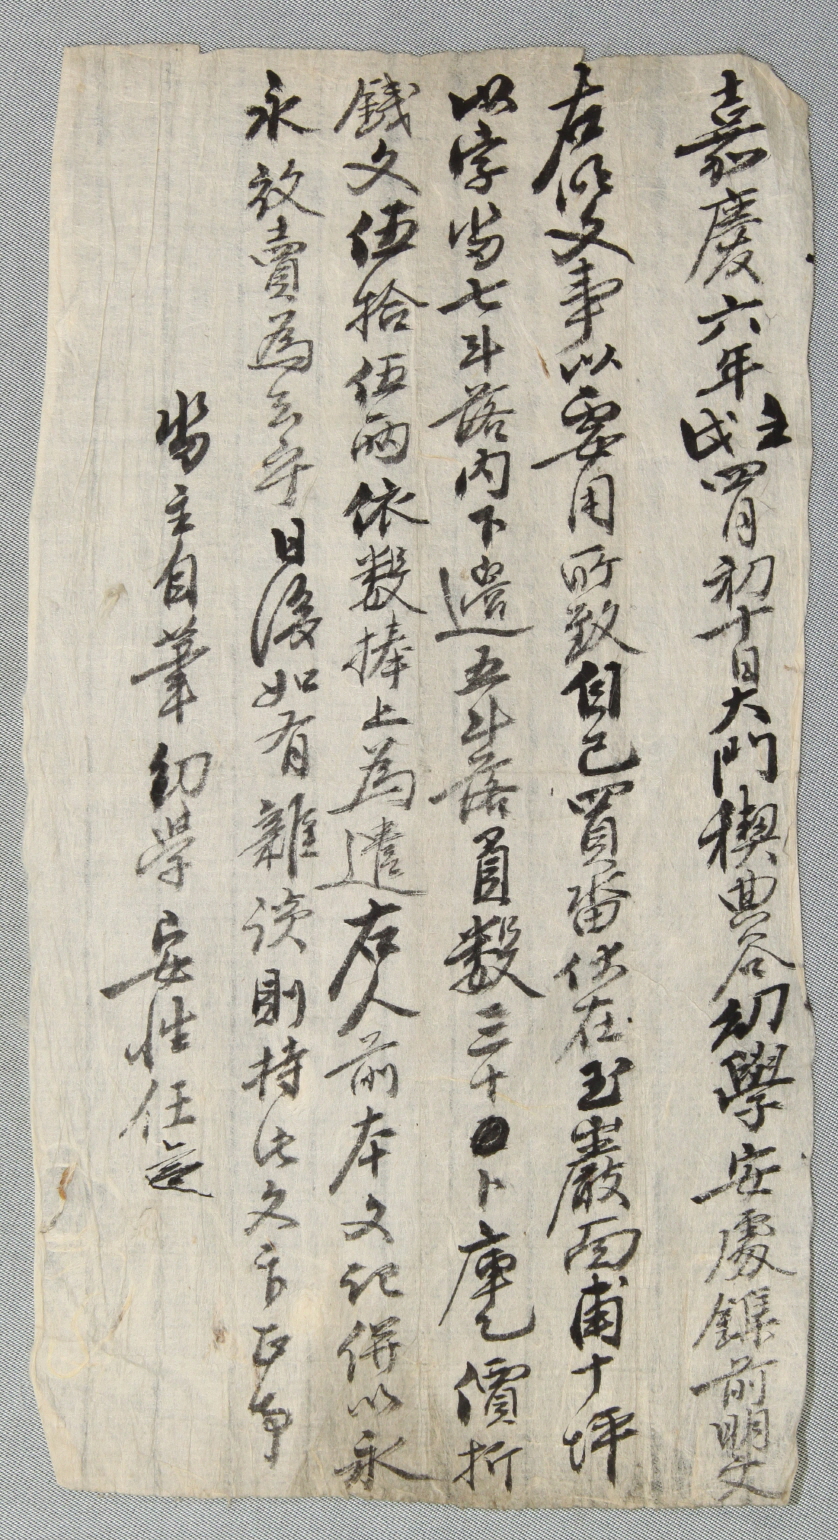 嘉慶六年壬戌四月初十日大門稧典谷幼學安處 前明文
右明文事以要用所致自己買畓伏在玉巖面甫十坪
以字畓七斗落內下邊五斗落負數三十卜庫乙價折
錢文伍拾伍兩依數捧上爲遣右人前本文記併以永
永放賣爲去乎日後如有雜談則持此文告正事
畓主自筆幼學安性任